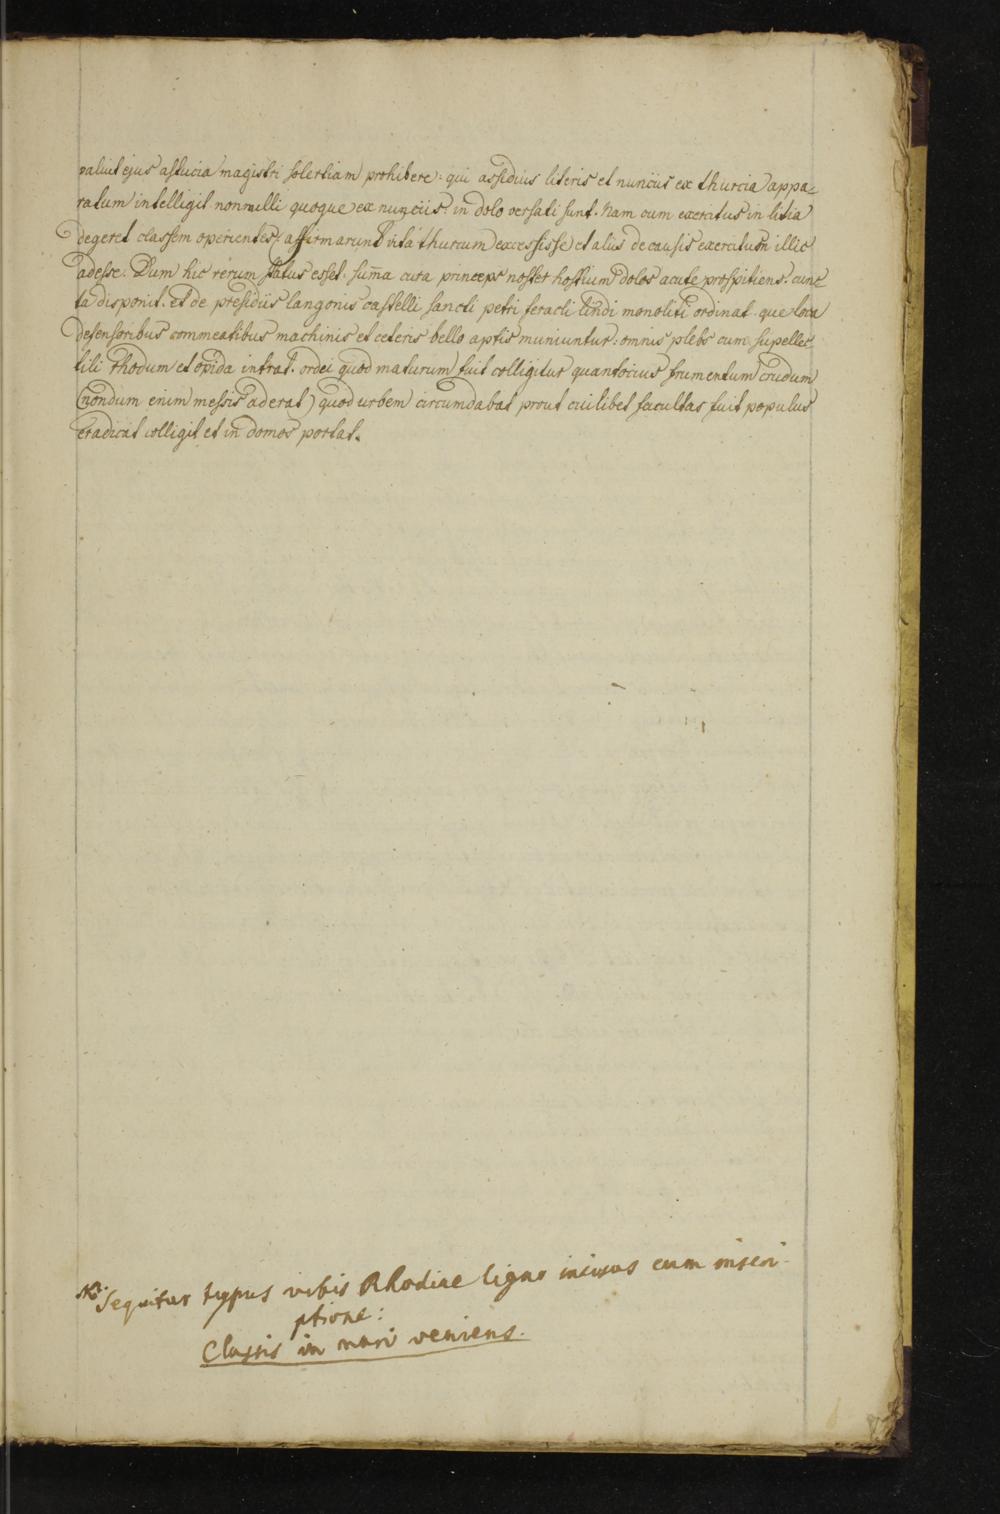 valuit ejus astucia magistri solertiam prohibere: qui assiduis literis et nunciis ex thurcia appa-
ratum intelligit nonnulli quoque ex nunciis in dolo versati sunt. Nam cum exercitus in litia
degeret classem operientes, affirmarunt vita thurcum excessisse et aliis de causis exercitum illic
adesse. Dum hic rerum status esset. sum̃a cura princeps noster hostium dolos acute prospitiens. cunc
ta disponit. et de presidiis langonis castelli sancti petri feracli lindi monoliti ordinat. que loca
defensoribus commeatibus machinis et ceteris bello aptis muniuntur. omnis plebs cum supellec
tili Rhodum et opida intrat. ordei quod maturum fuit colligitur quantocius frumentum crudum
(nondum enim messis aderat) quod urbem circumdabat prout cuilibet facultas fuit populus
eradicat colligit et in domos portat.
Sequitur typus urbis Rhodiae ligno incisus cum inscri-
ptione:
Classis in mari veniens.